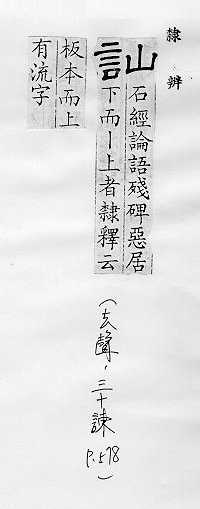 隸辨
訕
石經論語殘碑惡居
下而丨上者隸釋云
板本而上
有流字
(去聲,三十諫 P.578)